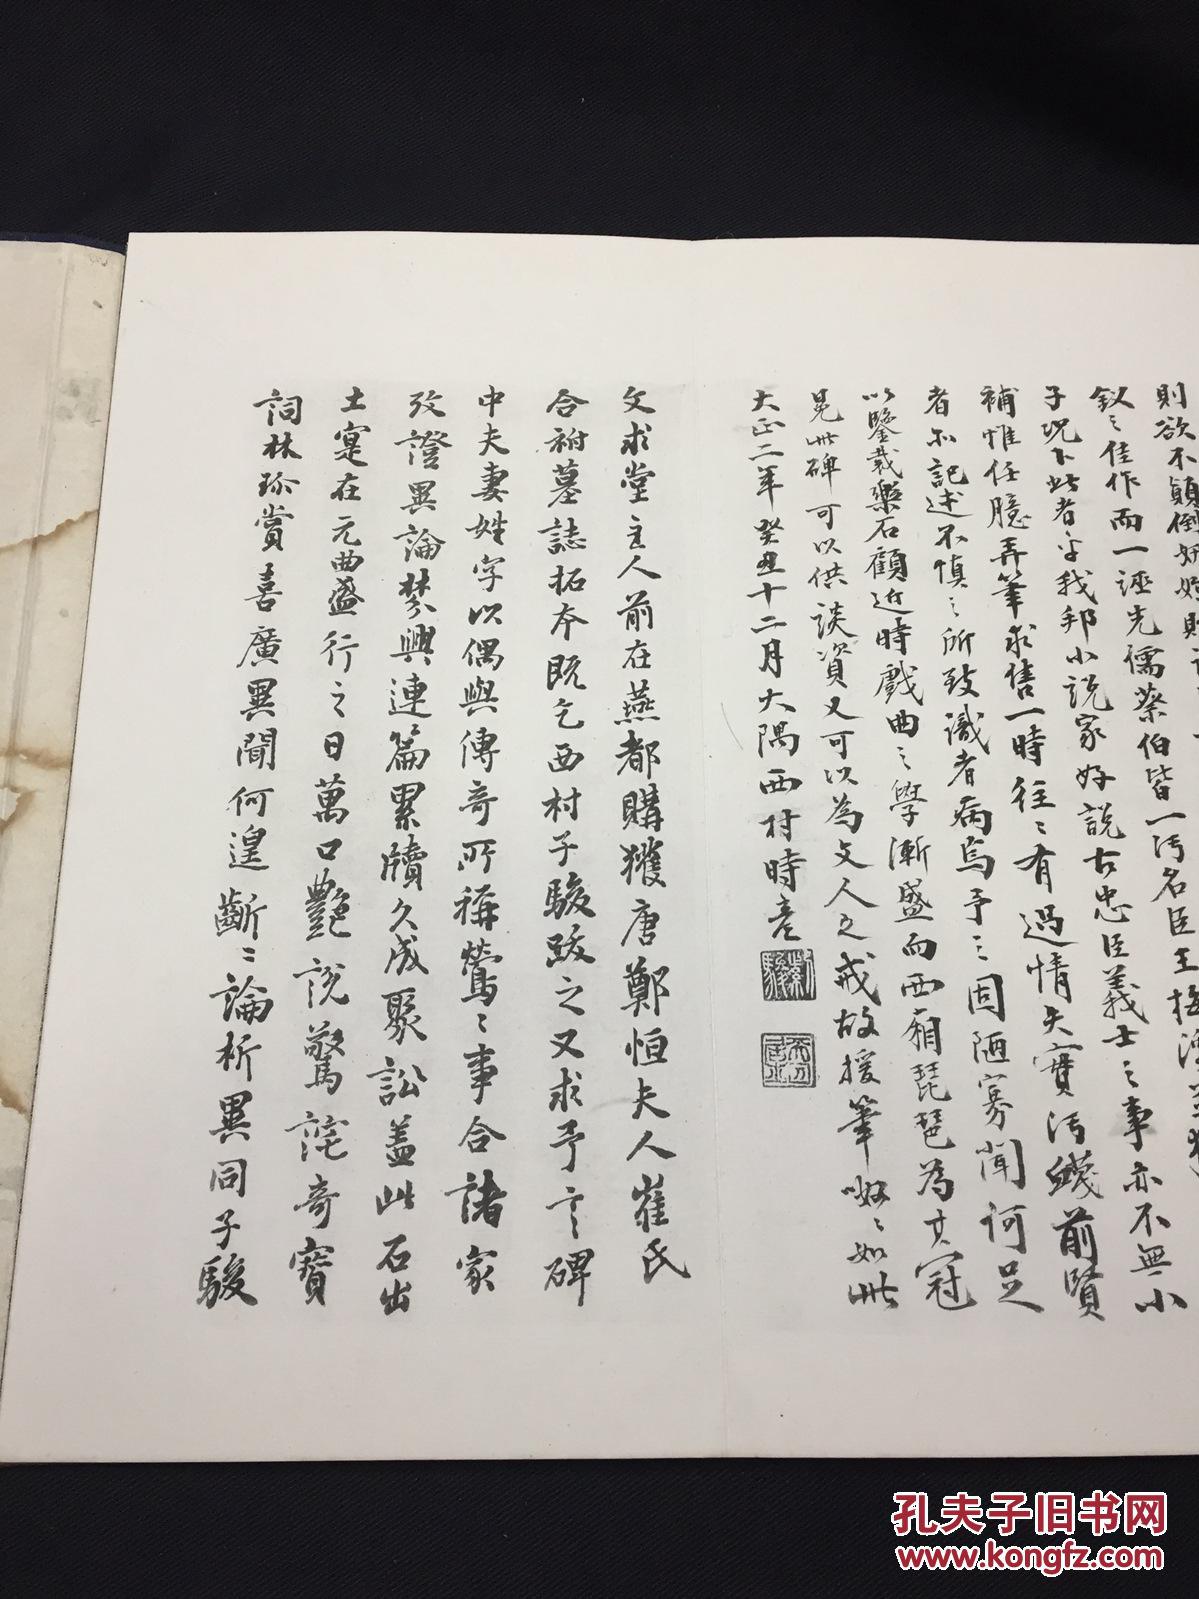 則欲不顛倒妍媸
釵之佳作而一誣先儒蔡伯喈一污名臣王梅溪
子況下此者乎我邦小説家好説古忠臣義士之事亦不無小
補惟任臆弄筆求售一時往〻有過情失實污衊前賢
者尓記述不慎之所致識者病焉予之固陋寡聞何足
以鑒裁樂石顧近時戲曲之學漸盛而西廂琵琶為其冠
冕此碑可以供談資又可以為文人之戒故援筆呶〻如此
大正二年癸丑十二月大隅西村時彥
文求堂主人前在燕都購獲唐鄭恒夫人崔氏
合祔墓誌拓本既乞西村子駿跋之又求予言碑
中夫妻姓字以偶與傳奇所稱鶯〻事合諸家
攷證異論棼興連篇累牘久成聚訟蓋此石出
土寔在元曲盛行之日萬口艷説驚詫奇寶
詞林珎賞喜廣異聞何遑齗〻論析異同子駿
孔夫子旧书网
www.kongfz.com